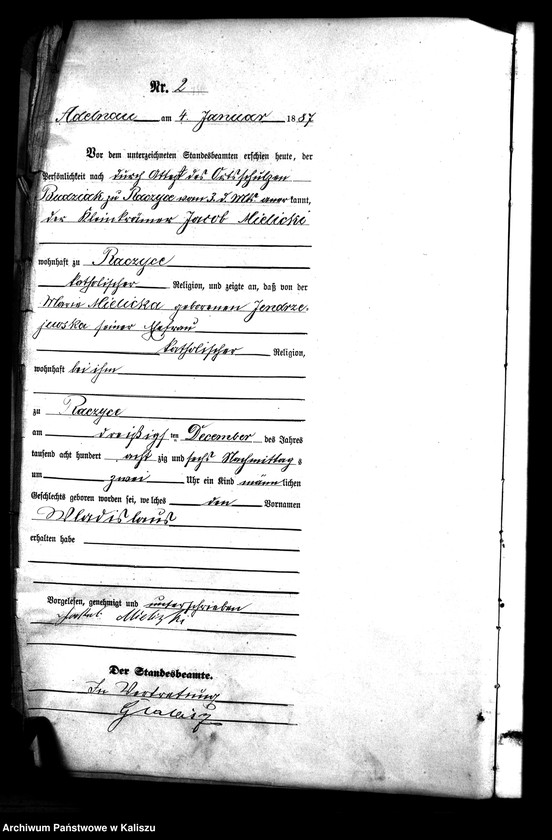 Nr. 2
Adelnau am 4. Januar 1887
Vor dem unterzeichneten Standesbeamten erschien heute, der
Persönlichkeit nach durch Attest des Ortsschulzen
Budziak zu Raczyce vom 3. d. Mts. aner kannt,
der Kleinkrämer Jacob Mielicki
wohnhaft zu Raczyce
katholischer Religion, und zeigte an, daß von der
Maria Mielicka geborenen Jendrze-
jewska seiner Ehefrau
katholischer Religion,
wohnhaft bei ihm
zu Raczyce
am dreißigsten December des Jahres
tausend acht hundert acht zig und sechs Nachmittag s
um zwei Uhr ein Kind männlichen
Geschlechts geboren worden sei, welches den Vornamen
Wladislaus
erhalten habe
Vorgelesen, genehmigt und unterschrieben
Der Standesbeamte.
In Vertretung
Archiwum Państwowe w Kaliszu